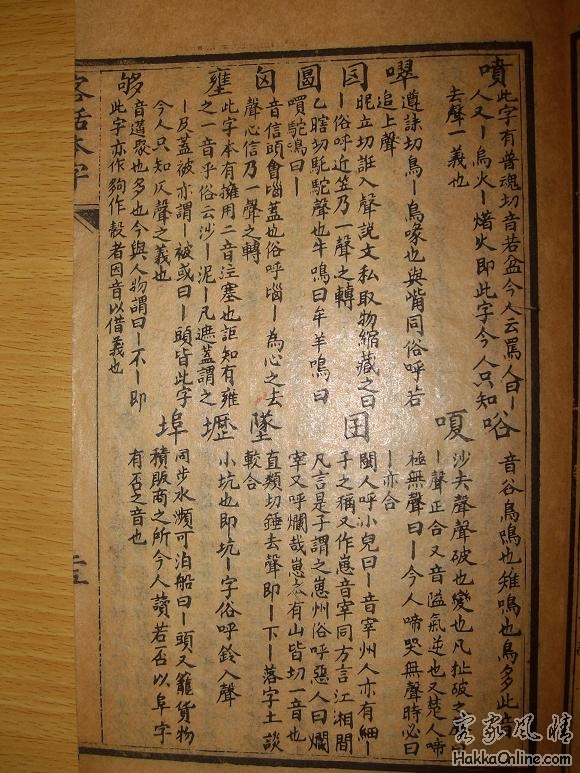 噴
此字有普魂切音若盆今人云罵人曰丨
人又丨烏火丨熷火即此字今人只知
去聲一義也
遵誄切鳥丨鳥喙也與觜同俗呼若
追上聲
昵立切誑入聲說文私取物縮藏之曰
丨俗呼近笠乃一聲之轉
乙瞎切駝駝聲也牛鳴曰牟羊鳴曰
駝鳴曰丨
囟
音信頭會堖蓋也俗呼堖丨為心之去
聲心信乃一聲之轉
壅
此字本有擁用二音注塞也詎知有雍
之一音乎俗云沙丨泥丨凡遮蓋謂之
丨及蓋被亦謂丨被或曰丨頭皆此字
今人只知仄聲之義也
够
音遘聚也多也今與人物謂曰丨不丨即
此字亦作夠作㝅者因音以借義也
唂
音谷鳥鳴也雉鳴也鳥多此音
嗄
沙去聲聲破也變也凡扯破之
丨聲正合又音嗌氣逆也又楚人啼
極無聲曰丨今人啼哭無聲時必曰
丨亦合
囝
閩人呼小兒曰丨音宰州人亦有細丨
子之稱又作崽音宰同方言江湘間
凡言是子謂之崽州俗呼惡人曰爛
宰又呼爛哉崽亦有山皆切一音也
墜
直類切錘去聲即丨下丨落字土談
較合
壢
小坑也即坑丨字俗呼鈴入聲
埠
同步水瀕可泊船曰丨頭又籠貨物
積販商之所今人讀若否以阜字
有否之音也
客話本字
客家風情
HakkaOnline.com